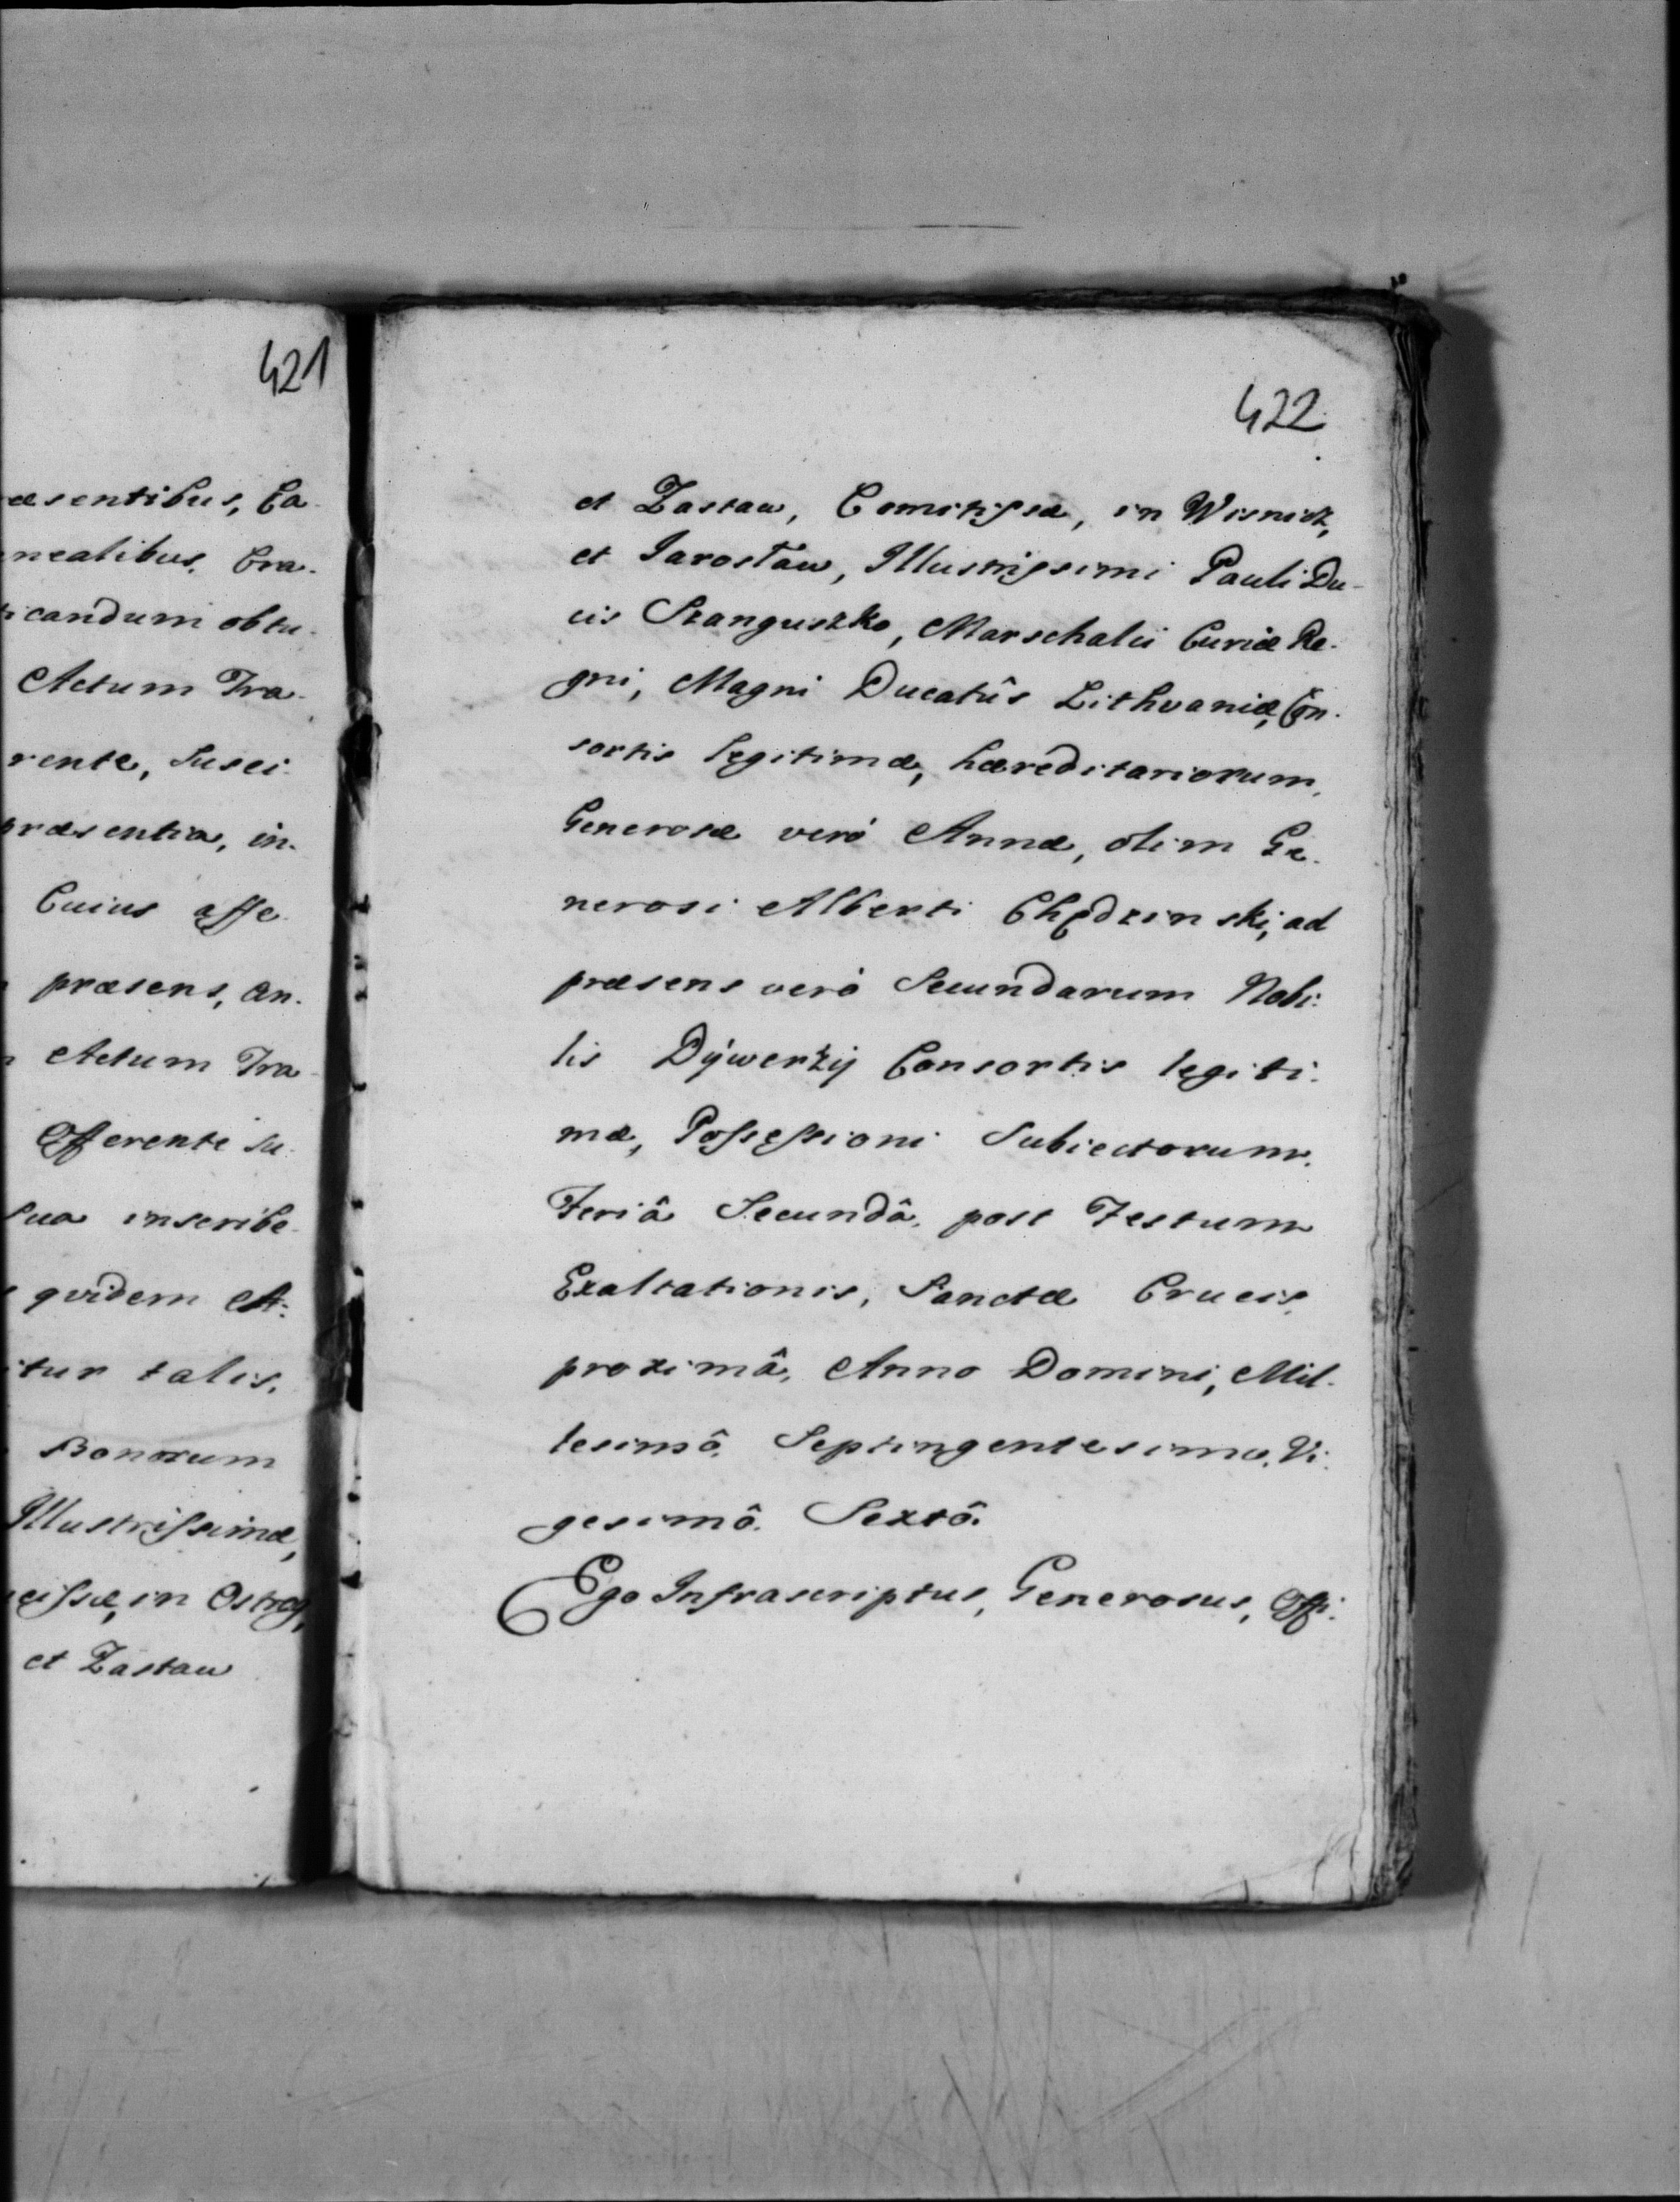 421
æsentibus, Ca-
nealibus, Cra-
icandum obtu-
Actum Tra-
rente, Susci-
præsentia, in-
Cuius asse-
præsens, an-
Actum Tra-
Offerente su-
sua inscribe-
quidem At-
itur talis.
Bonorum
Illustrissimæ,
cissæ, in Ostrog,
et Zasław
422
et Zasław, Comitissæ, in Wisnicz,
et Jarosław, Illustrissimi Pauli Du-
cis Szanguszko, Marschalci Curiæ Re-
gni, Magni Ducatûs Lithvaniæ, Con-
sortis legitimæ, hæreditariorum,
Generosæ verò Annæ, olim Ge-
nerosi Alberti Chędzinski, ad
præsens verò Secundarum Nobi-
lis Dÿwerżÿ Consortis legiti-
mæ, Possessioni Subiectorum.
Feriâ Secundâ, post Festum
Exaltationis, Sanctæ Crucis,
proximâ, Anno Domini, Mil-
lesimô, Septingentesimo, Vi-
gesimô. Sextô.
Ego Infrascriptus, Generosus, Offi-